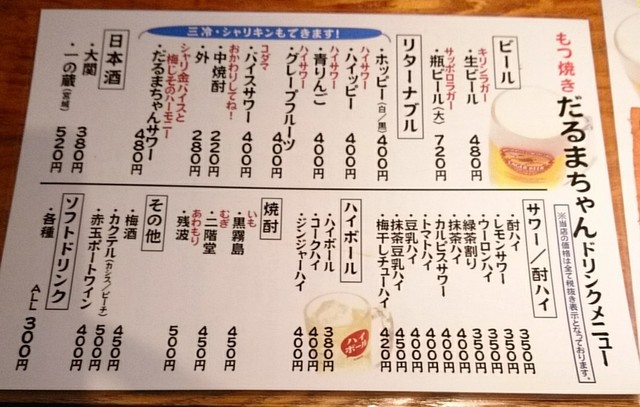 もつ焼き だるまちゃん ドリンクメニュー
※当店の価格は全て税抜き表示となっております。
ビール
キリンラガー
・生ビール 480円
サッポロラガー
・瓶ビール(大) 720円
リターナブル
三冷・シャリキンもできます!
・ホッピー(白/黒) 400円
ハイサワー
・ハイッピー 400円
ハイサワー
・青りんご 400円
ハイサワー
・グレープフルーツ 400円
コダマ
・バイスサワー 400円
おかわりしてね!
・中焼酎 220円
・外 280円
シャリ金バイスと
梅しそのハーモニー
・だるまちゃんサワー 480円
日本酒
・大関 380円
・一の蔵(宮城) 520円
サワー/酎ハイ
・酎ハイ 350円
・レモンサワー 350円
・ウーロンハイ 350円
・緑茶割り 350円
・抹茶ハイ 400円
・カルピスサワー 400円
・トマトハイ 400円
・豆乳ハイ 400円
・抹茶豆乳ハイ 450円
・梅干しチューハイ 420円
ハイボール
・ハイボール 380円
・コークハイ 400円
・ジンジャーハイ 400円
ハイボール
焼酎
いも
・黒霧島 450円
むぎ
・二階堂 450円
あわもり
・残波 500円
その他
・梅酒 450円
・カクテル(カシス/ピーチ) 500円
・赤玉ポートワイン 400円
ソフトドリンク
・各種 ALL 300円